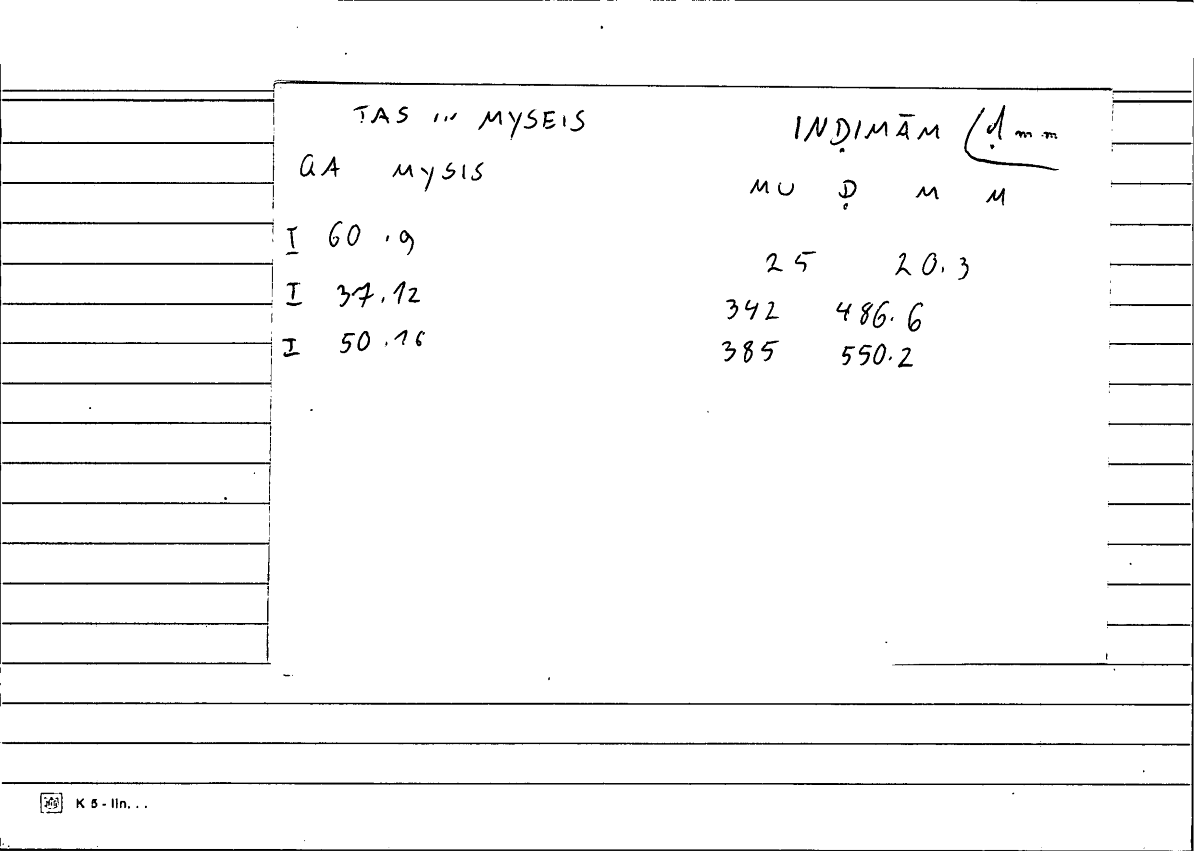 TAS in MYSEIS INḌIMĀM (ḍmm
GA MYSIS MU Ḍ M M
I 60.9 25 20.3
I 37.12 342 486.6
I 50.16 385 550.2
K 5 - lin. . .